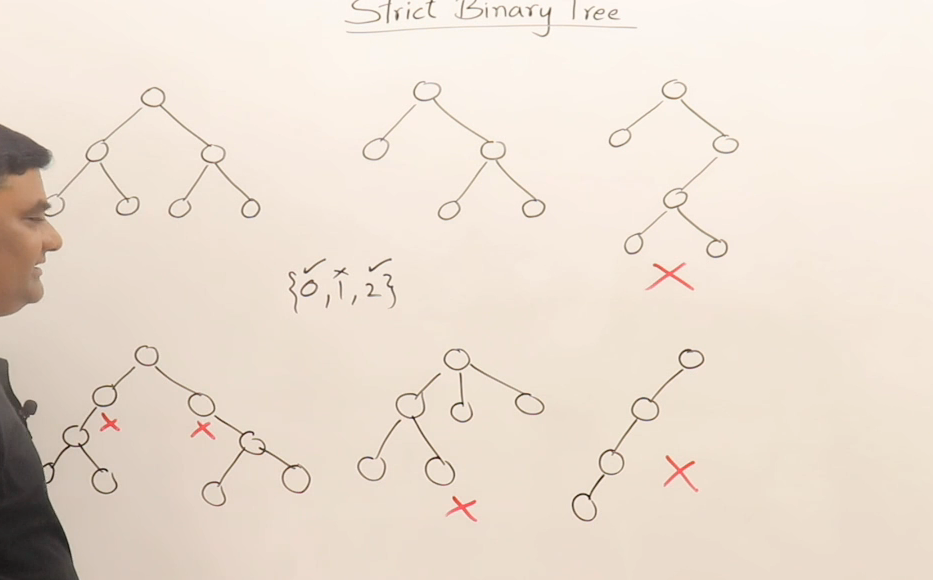 Strict Binary Tree
{0,1,2}